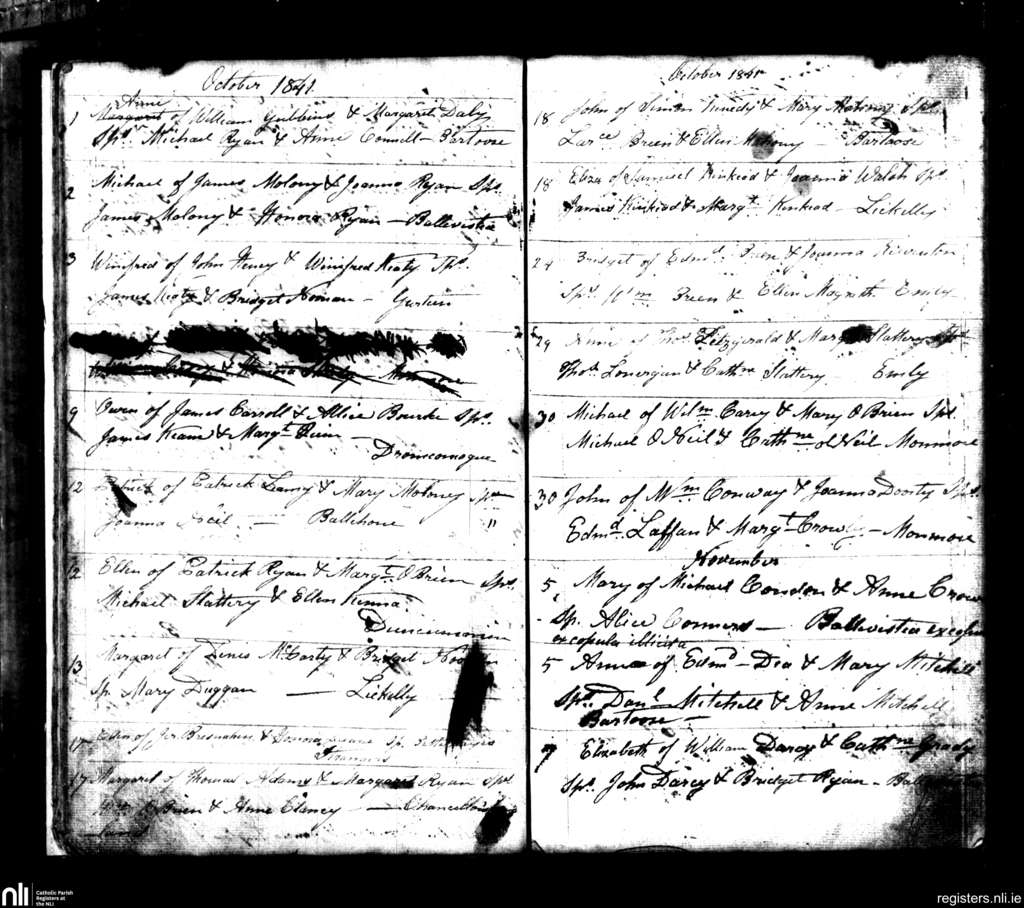 October 1841
Anne
1 Margaret of William Gubbins & Margaret Daly
Sps. Michael Ryan & Anne Connell - Bartoose
2 Michael of James Molony & Joanna Ryan Sps.
James Molony & Honora Ryan - Ballevistea
3 Winifred of John Heney & Winifred Heaty Sps.
James & Bridget Noonan -
9 Owen of James Carroll & Allice Bourke Sps.
James Keane & Margt. -
Dromcomogue
12 Patrick of Patrick Leamy & Mary Moloney Sps
Joanna Neil - Ballehone "
12 Ellen of Patrick Ryan & Margt. O Brien Sps.
Michael Slattery & Ellen Kenna
13 Margaret of Denes McCarty & Bridget
Sp. Mary Duggan - Lickelly
17 Ellen of Jer. Bresnahen & Sp.
Strangers
17 Margaret of Thomas Adams & Margaret Ryan Sps
Brien & Anne Clancy -
October 1841
18 John of Simon & Mary Sps.
Larce Breen & Ellen Mahony - Bartoose
18 Eliza of Samuel Kinkead & Joanna Walsh Sps.
James Kinkead & Margt. Kinkead - Lickelly
24 Bridget of Edmd. Breen & Joanna
Sps. Wm Breen & Ellen Magrath Emly
29 Anne of Thos. Fitzgerald & Mary Slattery Sps
Thos. Lonergan & Cathne Slattery Emly
30 Michael of Wilm. Carey & Mary O Brien Sps.
Michael O Neil & Cathne oNeil Monmore
30 John of Wm Conway & Joanna Doosty Sps.
Edmd. Laffan & Margt. Crowly - Monmore
November
5 Mary of Michael Condon & Anne Crow
Sp. Alice Connors - Ballevistea
ex copula illicita
5 Anne of Edmd - Dea & Mary Mitchell
Sps. Danl Mitchell & Anne Mitchell
Bartoose -
7 Elizabeth of William Darcy & Cathne Grady
Sps. John Darcy & Bridget Ryan -
nli
Catholic Parish
Registers at
the NLI
registers.nli.ie